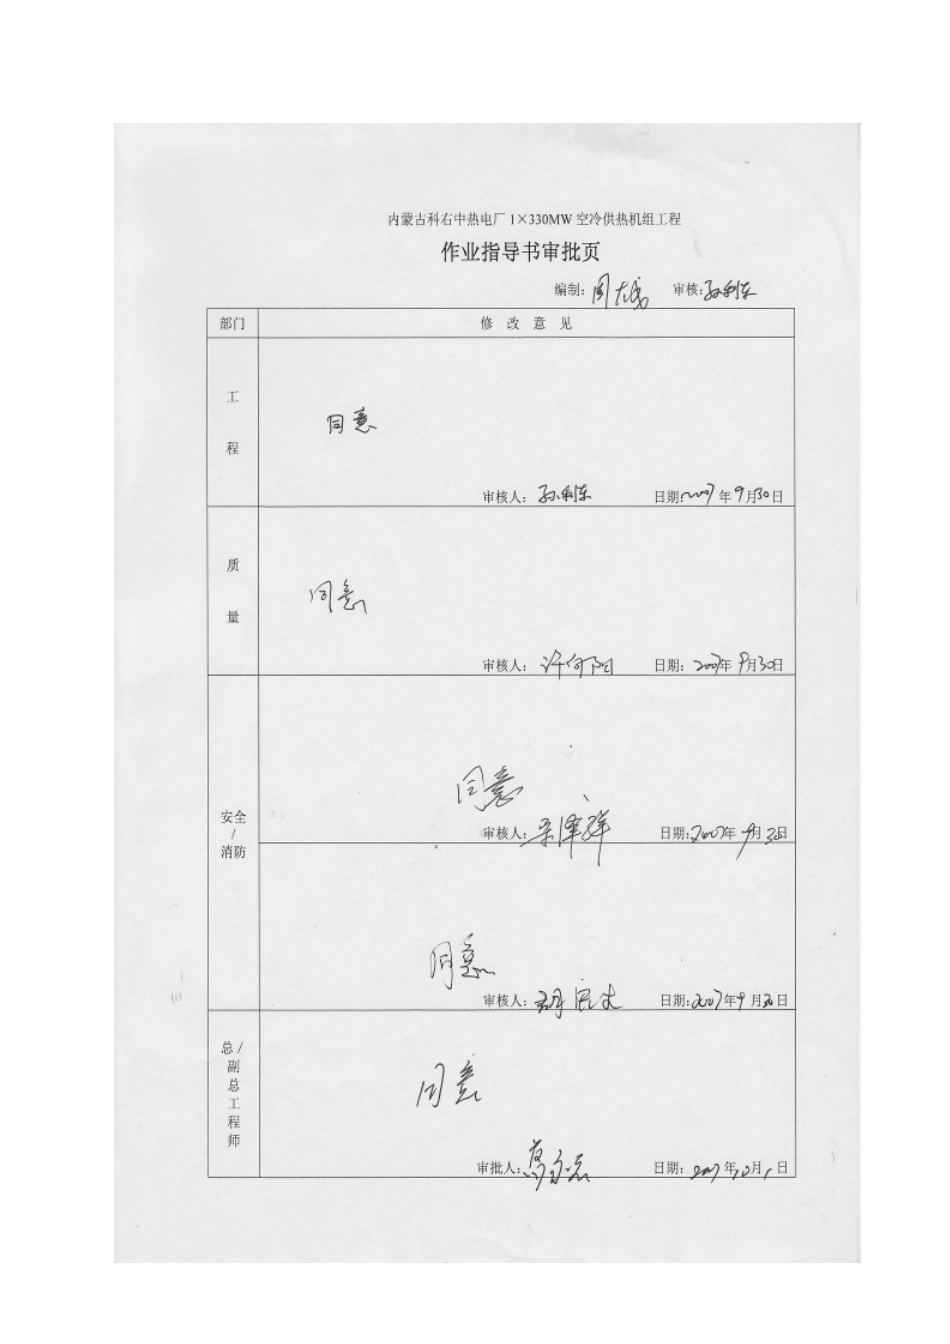 内蒙古科右中热电厂 1×330MW 空冷供热机组工程
作业指导书审批页
编制: 审核:孙利东
部门 修 改 意 见
工
程
同意
审核人: 孙利东 日期:2007年9月30日
质
量
同意
审核人: 许向阳 日期: 2007年9月30日
安全
/
消防
同意
审核人: 日期:2007年9月30日
同意
审核人: 日期:2007年9月30日
总/
副
总
工
程
师
同意
审批人: 日期: 2007年10月1日